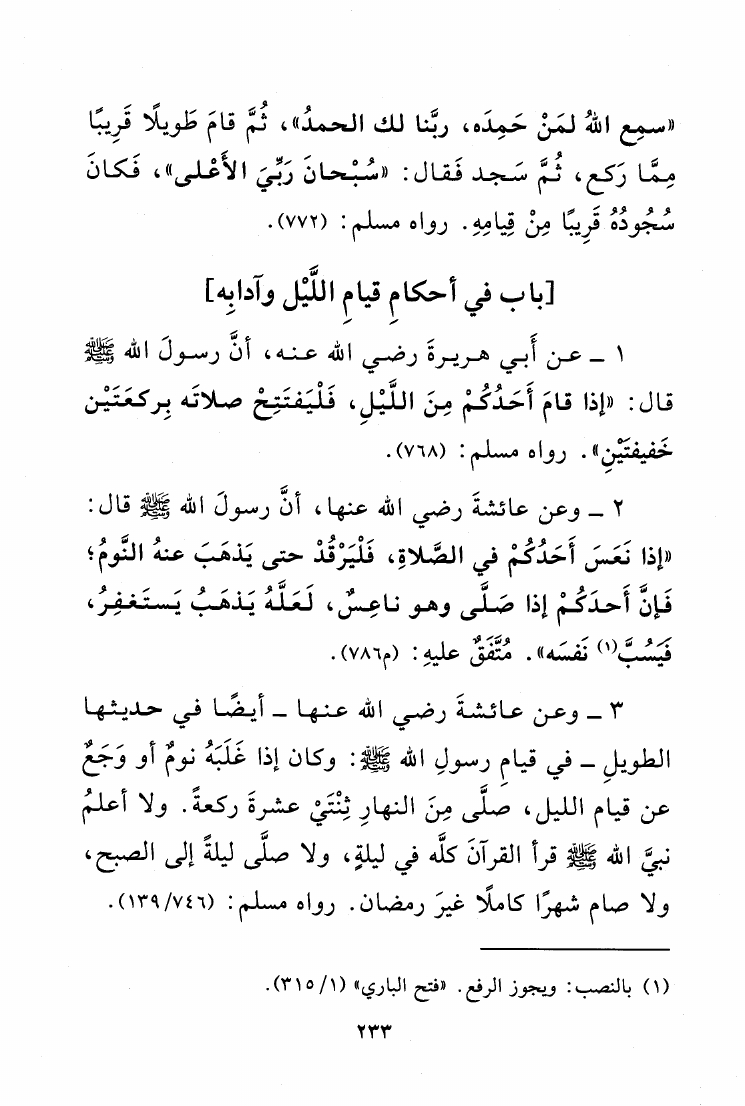 «سمِع اللهُ لمَنْ حَمِدَه، ربَّنا لك الحمدُ»، ثُمَّ قامَ طَويلًا قَرِيبًا
مِمَّا رَكع، ثُمَّ سَجد فَقال: «سُبْحانَ رَبِّيَ الأَعْلى»، فَكانَ
سُجُودُهُ قَرِيبًا مِنْ قِيامِهِ. رواه مسلم: (٧٧٢).
[باب في أحكامِ قيامِ اللَّيْل وآدابِه]
١ ـ عـن أَبـي هـريـرةَ رضـي الله عـنـه، أنَّ رسـولَ الله ﷺ
قال: «إذا قامَ أَحَدُكُمْ مِنَ اللَّيْلِ، فَلْيَفتَتِحْ صلاتَه بِركعَتَيْن
خَفيفتَيْنِ». رواه مسلم: (٧٦٨).
٢ ـ وعن عائشةَ رضي الله عنها، أنَّ رسولَ الله ﷺ قال:
«إذا نَعَسَ أَحَدُكُمْ في الصَّلاةِ، فَلْيَرْقُدْ حتى يَذهَبَ عنهُ النَّومُ؛
فَإنَّ أَحدَكُمْ إذا صَلَّى وهـو ناعِسٌ، لَعَلَّهُ يَذهَبُ يَستَغفِرُ،
فَيَسُبَّ(١) نَفسَه». مُتَّفَقٌ عليهِ: (م٧٨٦).
٣ ـ وعـن عـائـشـةَ رضـي الله عـنـهـا ـ أيـضًـا فـي حـديـثـهـا
الطويلِ ـ في قيامِ رسولِ الله ﷺ: وكان إذا غَلَبَهُ نومٌ أو وَجَعٌ
عن قيام الليل، صلَّى مِنَ النهارِ ثِنْتَيْ عشرةَ ركعةً. ولا أعلمُ
نبيَّ الله ﷺ قرأ القرآنَ كلَّه في ليلةٍ، ولا صلَّى ليلةً إلى الصبح،
ولا صام شهرًا كاملًا غيرَ رمضان. رواه مسلم: (١٣٩/٧٤٦).
(١) بالنصب: ويجوز الرفع. «فتح الباري» (٣١٥/١).
٢٣٣